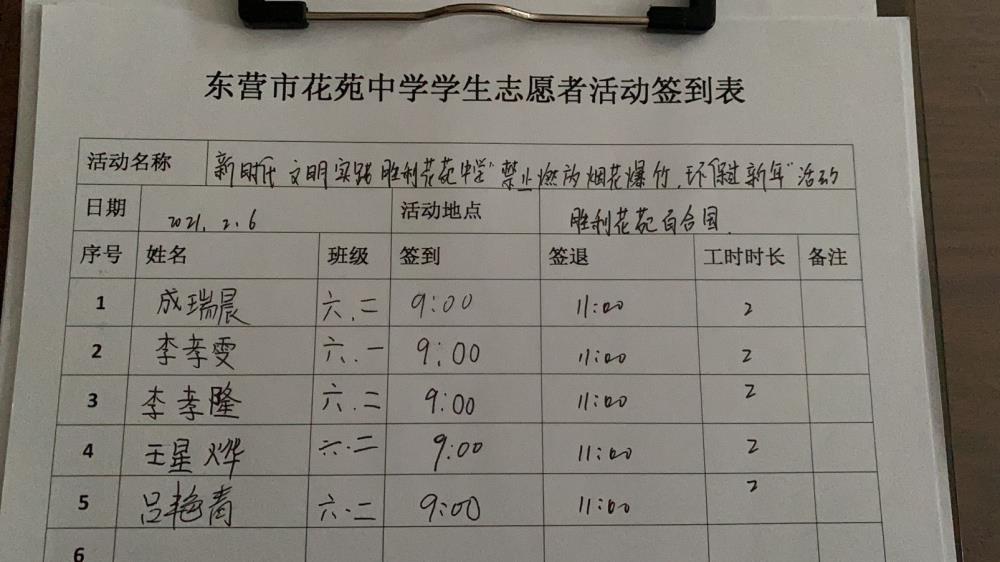 东营市花苑中学学生志愿者活动签到表
活动名称 新时代文明实践胜利花苑中学“禁止燃放烟花爆竹,环保过新年”活动
日期 2021.2.6 活动地点 胜利花苑百合园
序号 姓名 班级 签到 签退 工时时长 备注
1 成瑞晨 六.二 9:00 11:00 2
2 李孝雯 六.一 9:00 11:00 2
3 李孝隆 六.二 9:00 11:00 2
4 王星烨 六.二 9:00 11:00 2
5 吕艳青 六.二 9:00 11:00 2
6